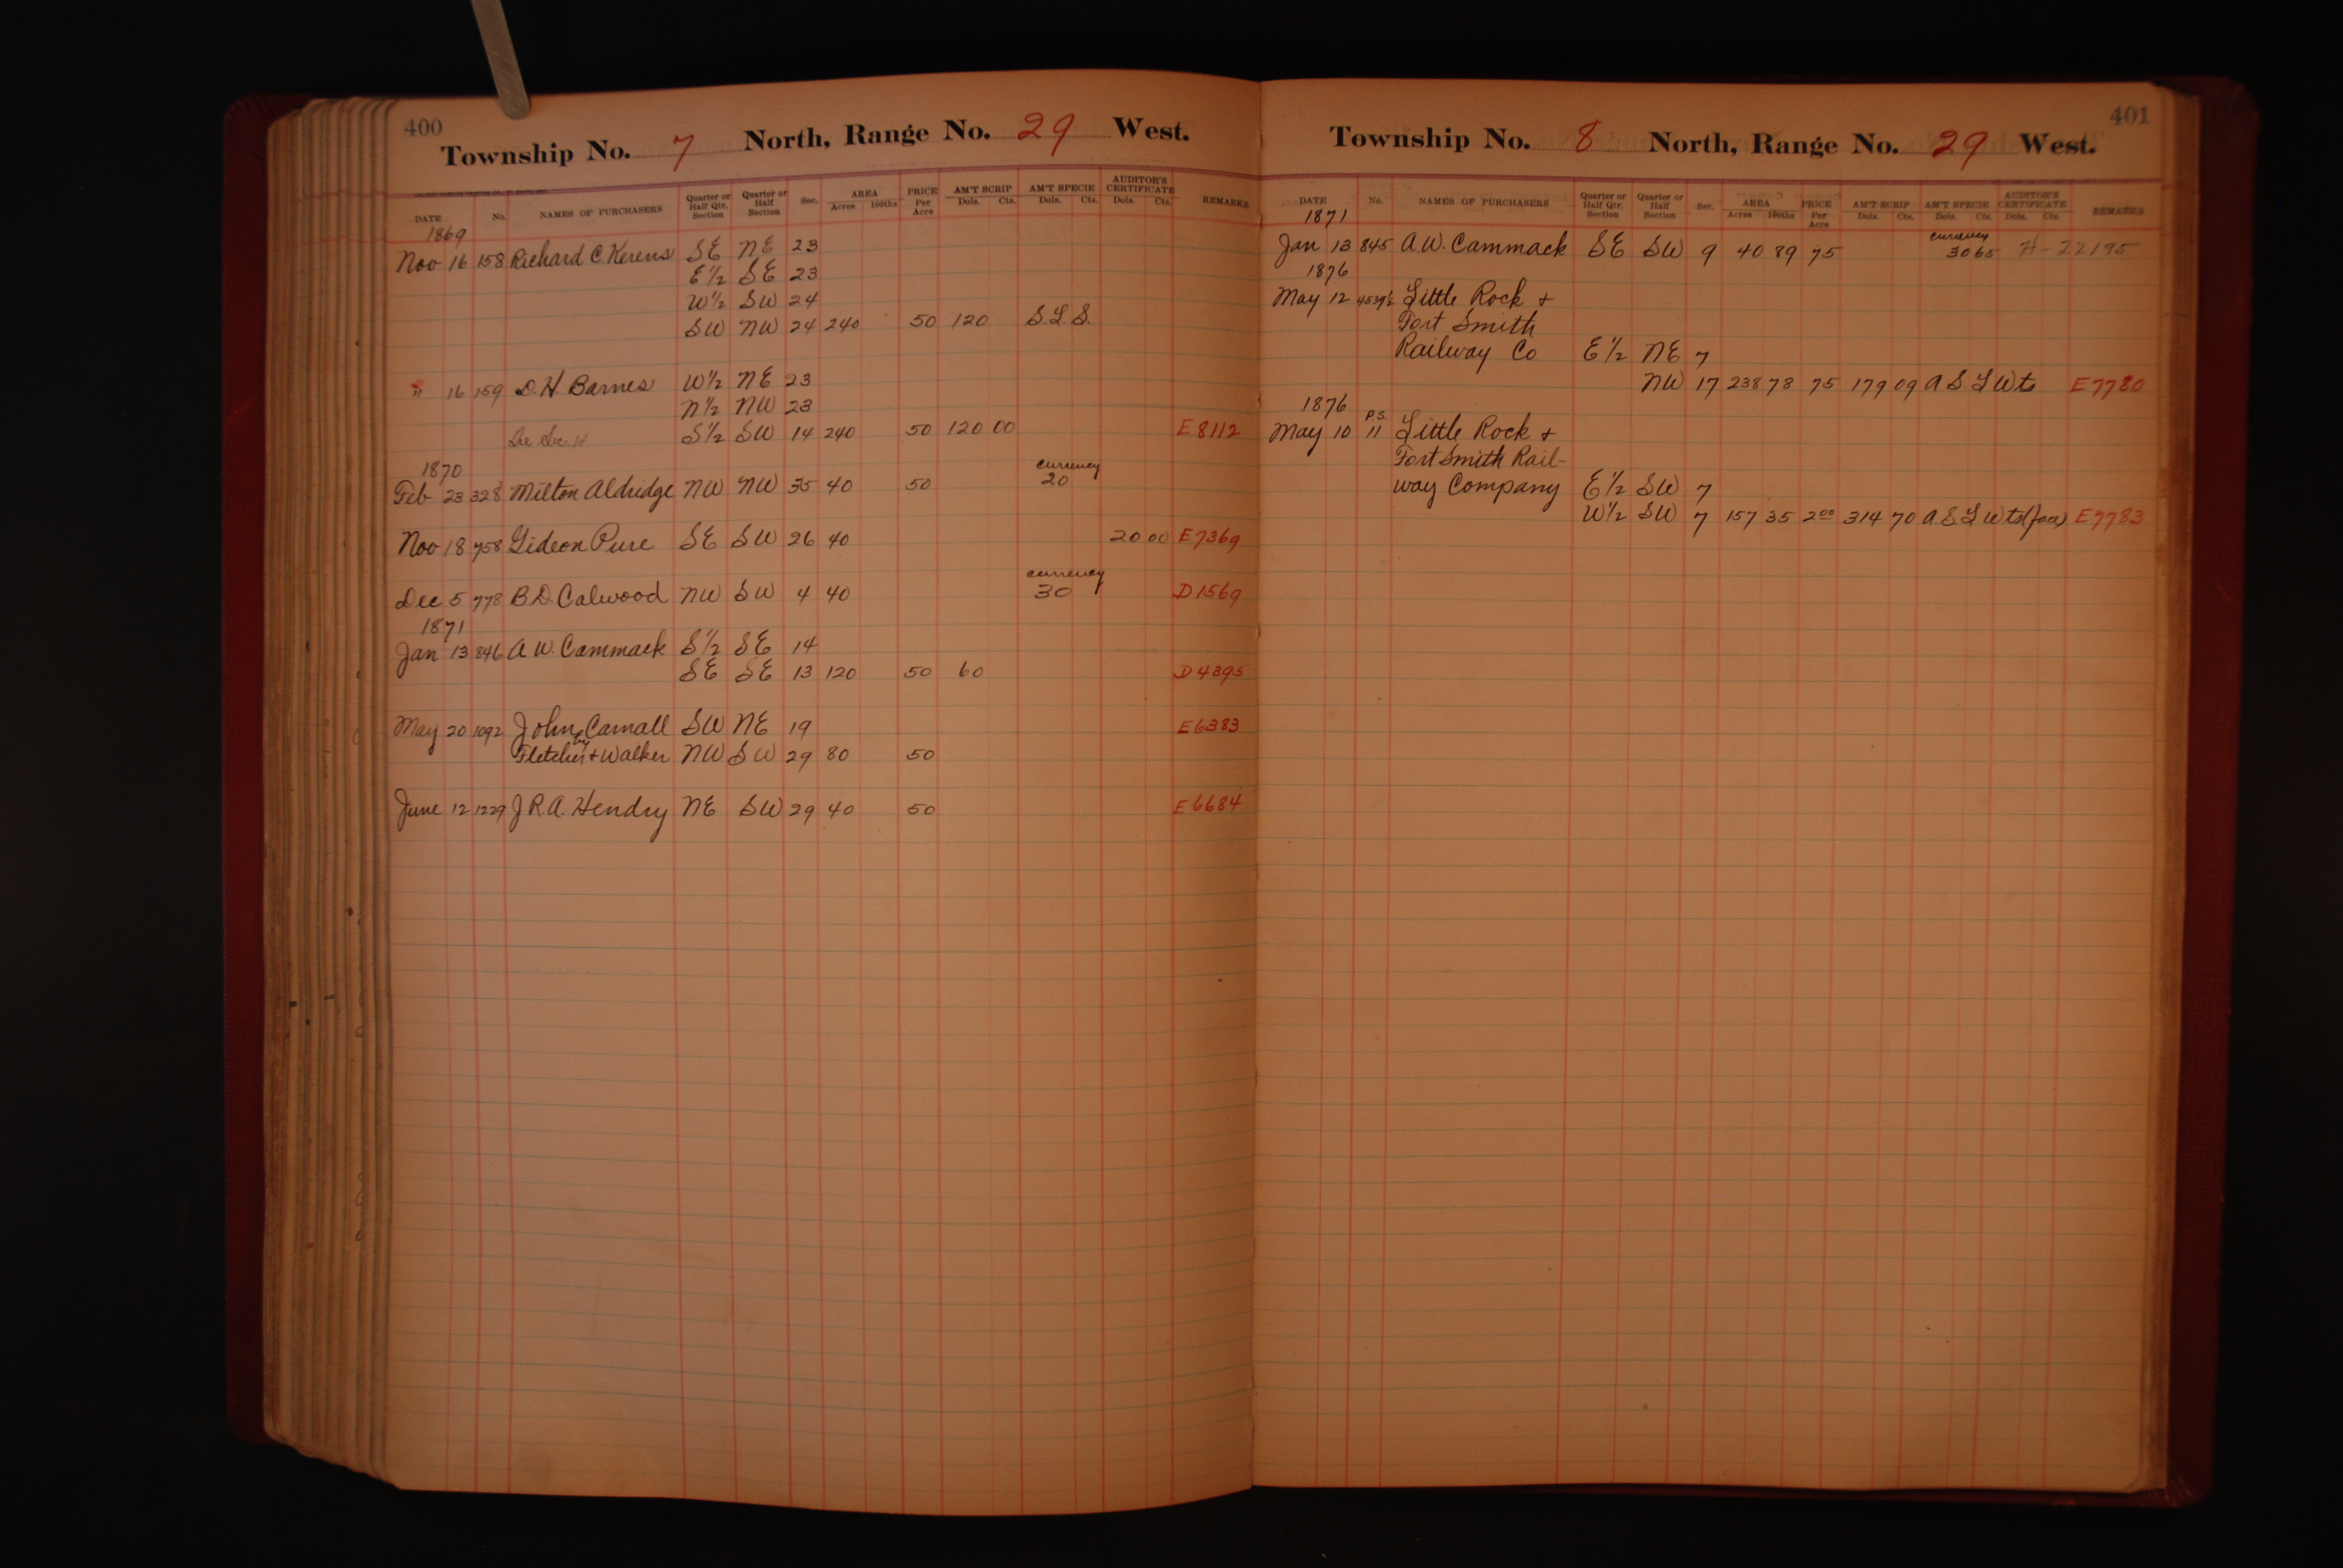 400
Township No. 7 North, Range No. 29 West.
DATE No. NAMES OF PURCHASERS Quarter or Half Qtr. Section Quarter or Half Section Sec. AREA Acres 100ths PRICE Per Acre AM'T SCRIP Dols. Cts. AM'T SPECIE Dols. Cts. AUDITOR'S CERTIFICATE Dols. Cts. REMARKS
1869
Nov 16 158 Richard C. Kerens SE NE 23
E½ SE 23
W½ SW 24
SW NW 24 240 50 120 S.L.S.
" 16 159 D.H. Barnes W½ NE 23
N½ NW 23
S½ SW 14 240 50 120 00 E8112
1870
currency
Feb 23 328 Milton Aldridge NW NW 35 40 50 20
Nov 18 758 Gideon Pure SE SW 26 40 20 00 E7369
currency
Dec 5 778 B.D. Calwood NW SW 4 40 30 D1569
1871
Jan 13 846 A.W. Cammack S½ SE 14
SE SE 13 120 50 60 D4395
May 20 1092 John Carnall SW NE 19 E6383
by
Fletcher & Walker NW SW 29 80 50
June 12 1229 J.R.A. Hendry NE SW 29 40 50 E6684
401
Township No. 8 North, Range No. 29 West.
DATE No. NAMES OF PURCHASERS Quarter or Half Qtr. Section Quarter or Half Section Sec. AREA Acres 100ths PRICE Per Acre AM'T SCRIP Dols. Cts. AM'T SPECIE Dols. Cts. AUDITOR'S CERTIFICATE Dols. Cts. REMARKS
1871
currency
Jan 13 845 A.W. Cammack SE SW 9 40 89 75 30 65 H-22195
1876
May 12 4539½ Little Rock &
Fort Smith
Railway Co E½ NE 7
NW 17 238 78 75 179 09 A.S.L Wts E7780
1876
P.S.
May 10 11 Little Rock &
Fort Smith Rail-
way Company E½ SW 7
W½ SW 7 157 35 2 00 314 70 A.S.L Wts (face) E7783